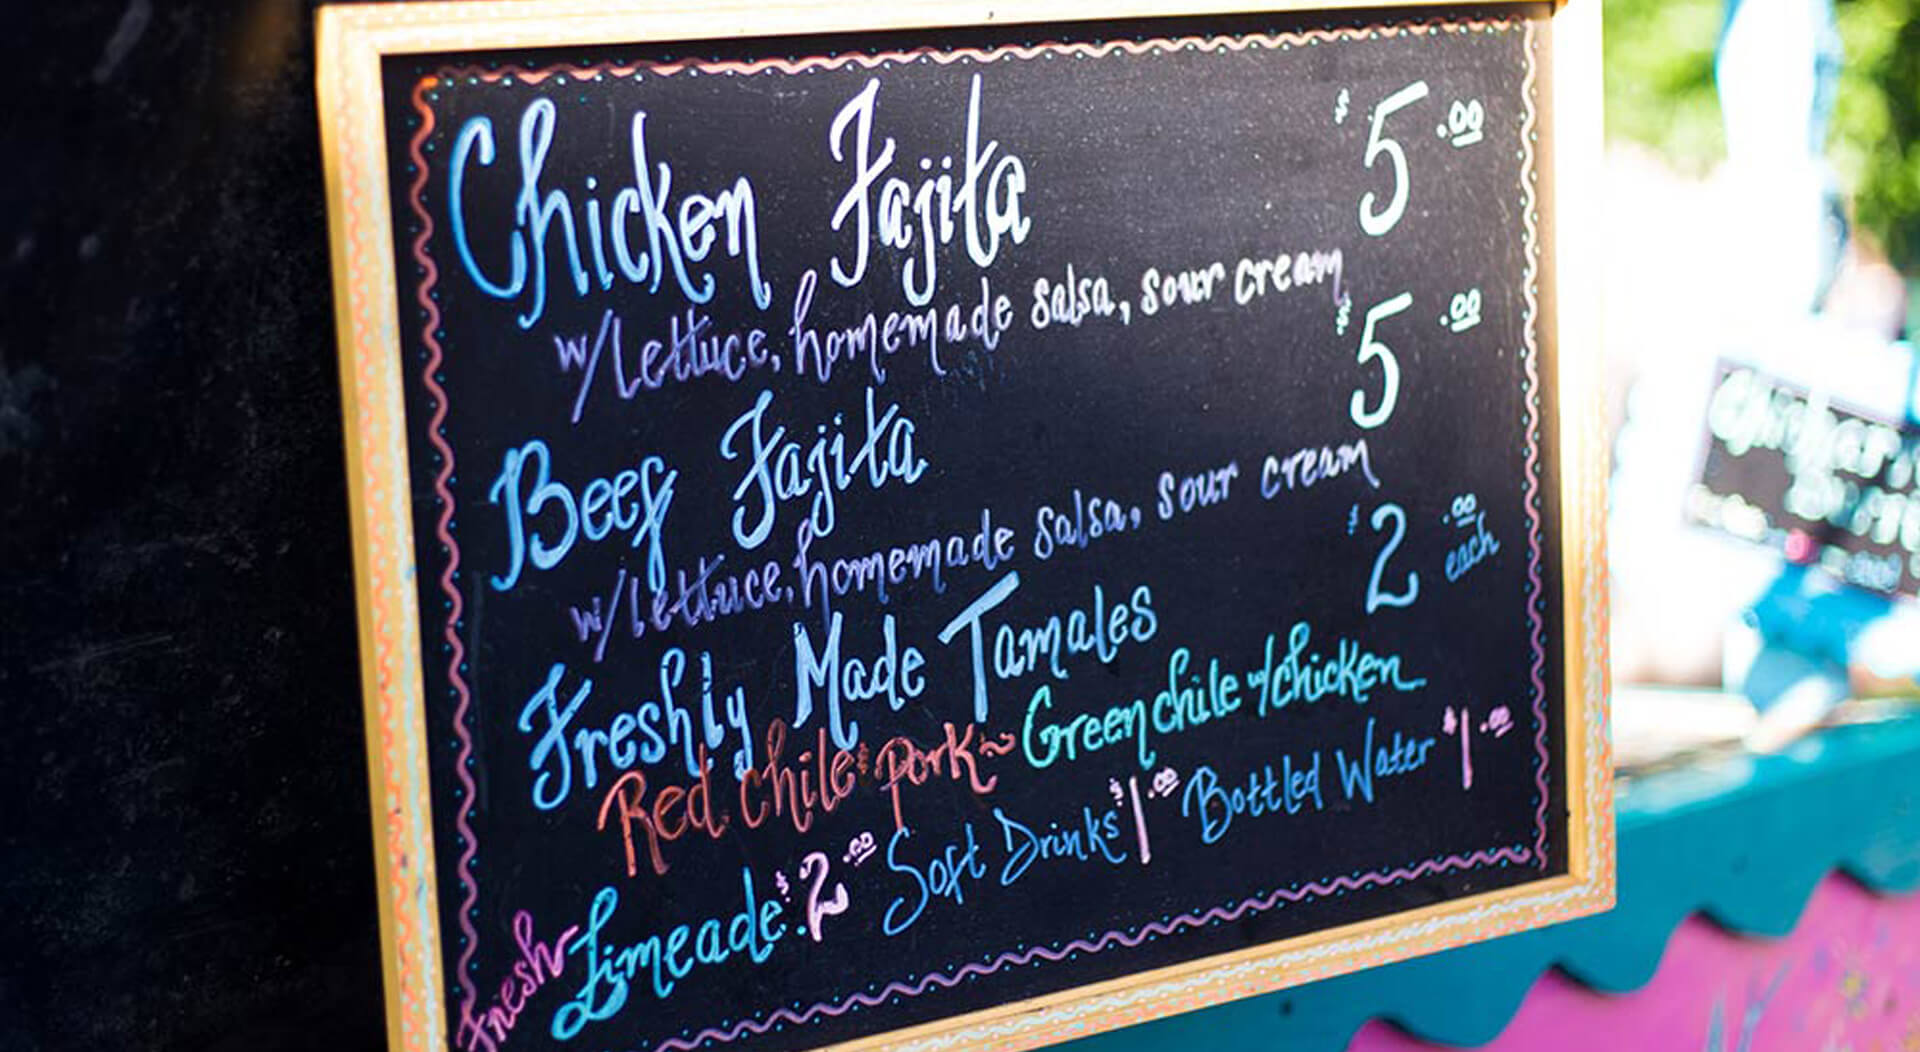 Chicken Fajita $5.00
w/lettuce, homemade salsa, sour cream
Beef Fajita $5.00
w/lettuce, homemade salsa, sour cream
Freshly Made Tamales $2.00 each
Red chile & pork ~ Green chile w/chicken
Fresh Limeade $2.00 Soft Drinks $1.00 Bottled Water $1.00